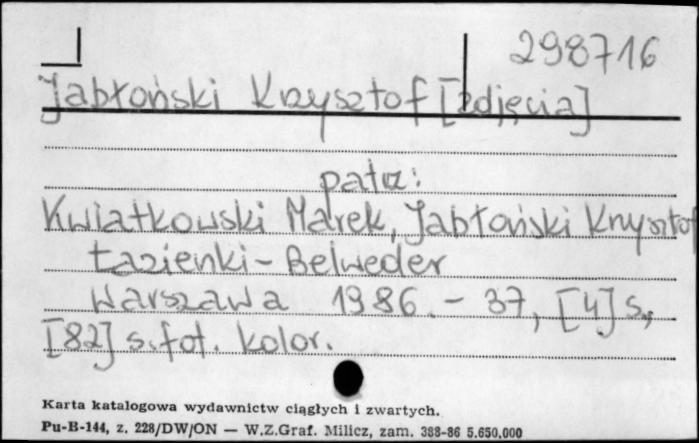 298716
Jabłoński Krzysztof [zdjęcia]
patrz:
Kwiatkowski Marek, Jabłoński Krzysztof
Łazienki - Belweder
Warszawa 1986. - 37, [4] s.,
[82] s. fot. kolor.
Karta katalogowa wydawnictw ciągłych i zwartych.
Pu-B-144, z. 228/DW/ON — W.Z.Graf. Milicz, zam. 388-86 5.650.000